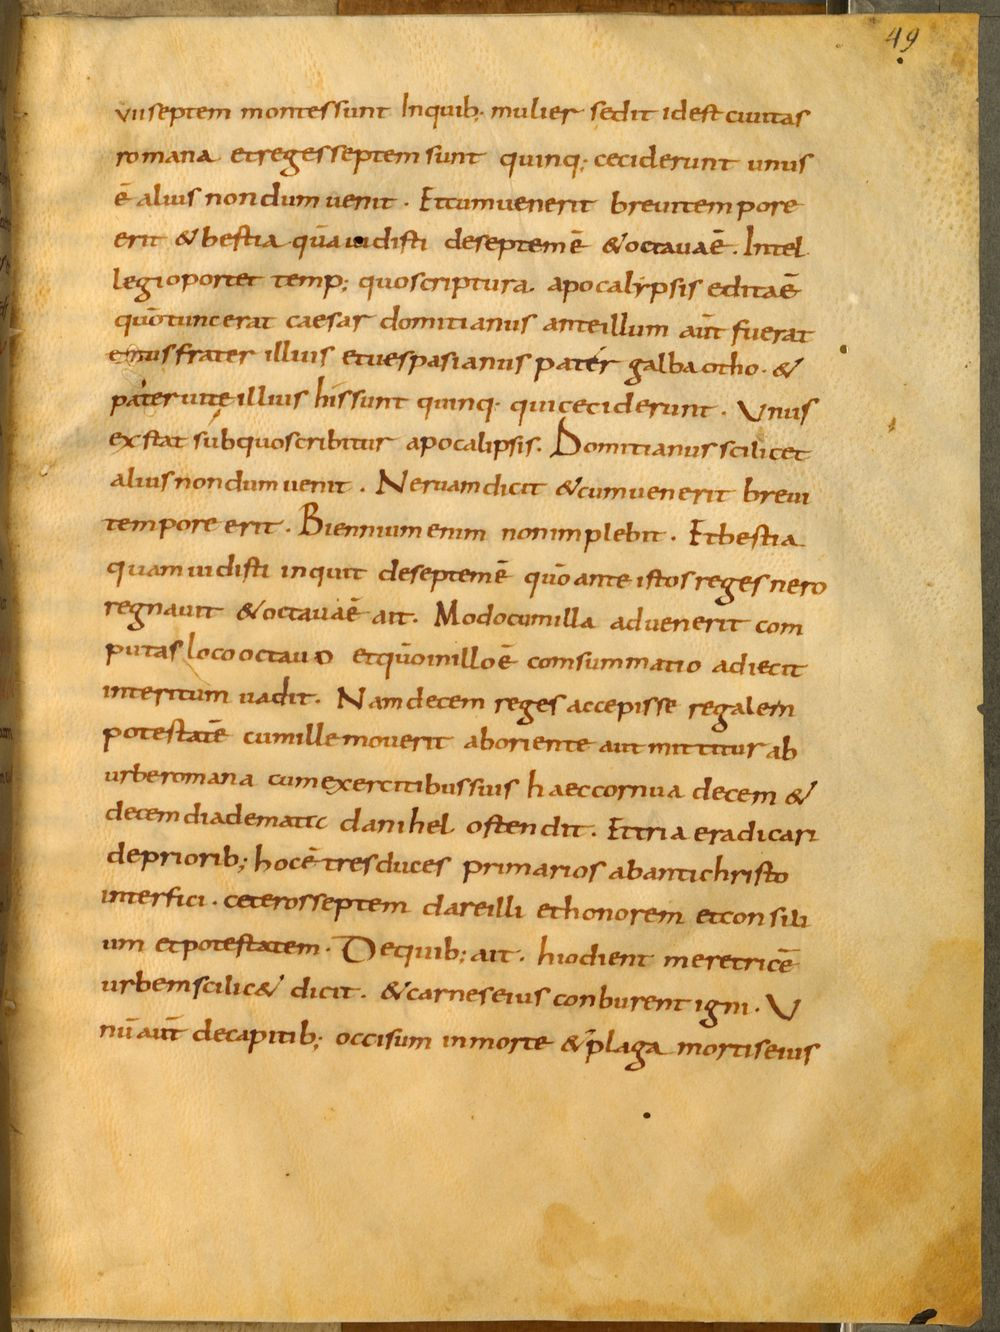 49
vii septem montes sunt Inquib; mulier sedit id est ciuitas
romana et reges septem sunt quinq; ceciderunt unus
ē alius nondum uenit. Et cum uenerit breui tempore
erit & bestia quā uidisti de septem ē & octaua ē. Intel
legi oportet temp; quo scriptura apocalypsis edita ē
quō tunc erat caesar domitianus ante illum aūt fuerat
frater illius et uespasianus pater galba otho. &
pater illius hi ssunt quinq. qui ceciderunt. Vnus
exstat sub quo scribitur apocalipsis. Domitianus scilicet
alius nondum uenit. Neruam dicit & cum uenerit breui
tempore erit. Biennium enim non implebit. Et bestia
quam uidisti inquit de septem ē quō ante istos reges nero
regnauit & octaua ē ait. Modo cum illa aduenerit com
putas loco octauo et quō in illo ē comsummatio adiecit
interitum uadit. Nam decem reges accepisse regalem
potestatē cum ille mouerit ab oriente aut mittitur ab
urbe romana cum exercitibus suis haec cornua decem &
decem diadematic danihel ostendit. Et tria eradicari
de priorib; hoc ē tres duces primarios ab antichristo
interfici. ceteros septem dare illi et honorem et consili
um et potestatem. De quib; ait. hi odient meretricē
urbem scilic& dicit. & carnes eius conburent igni. V
nū aūt de capitib; occisum in morte & plaga mortis eius